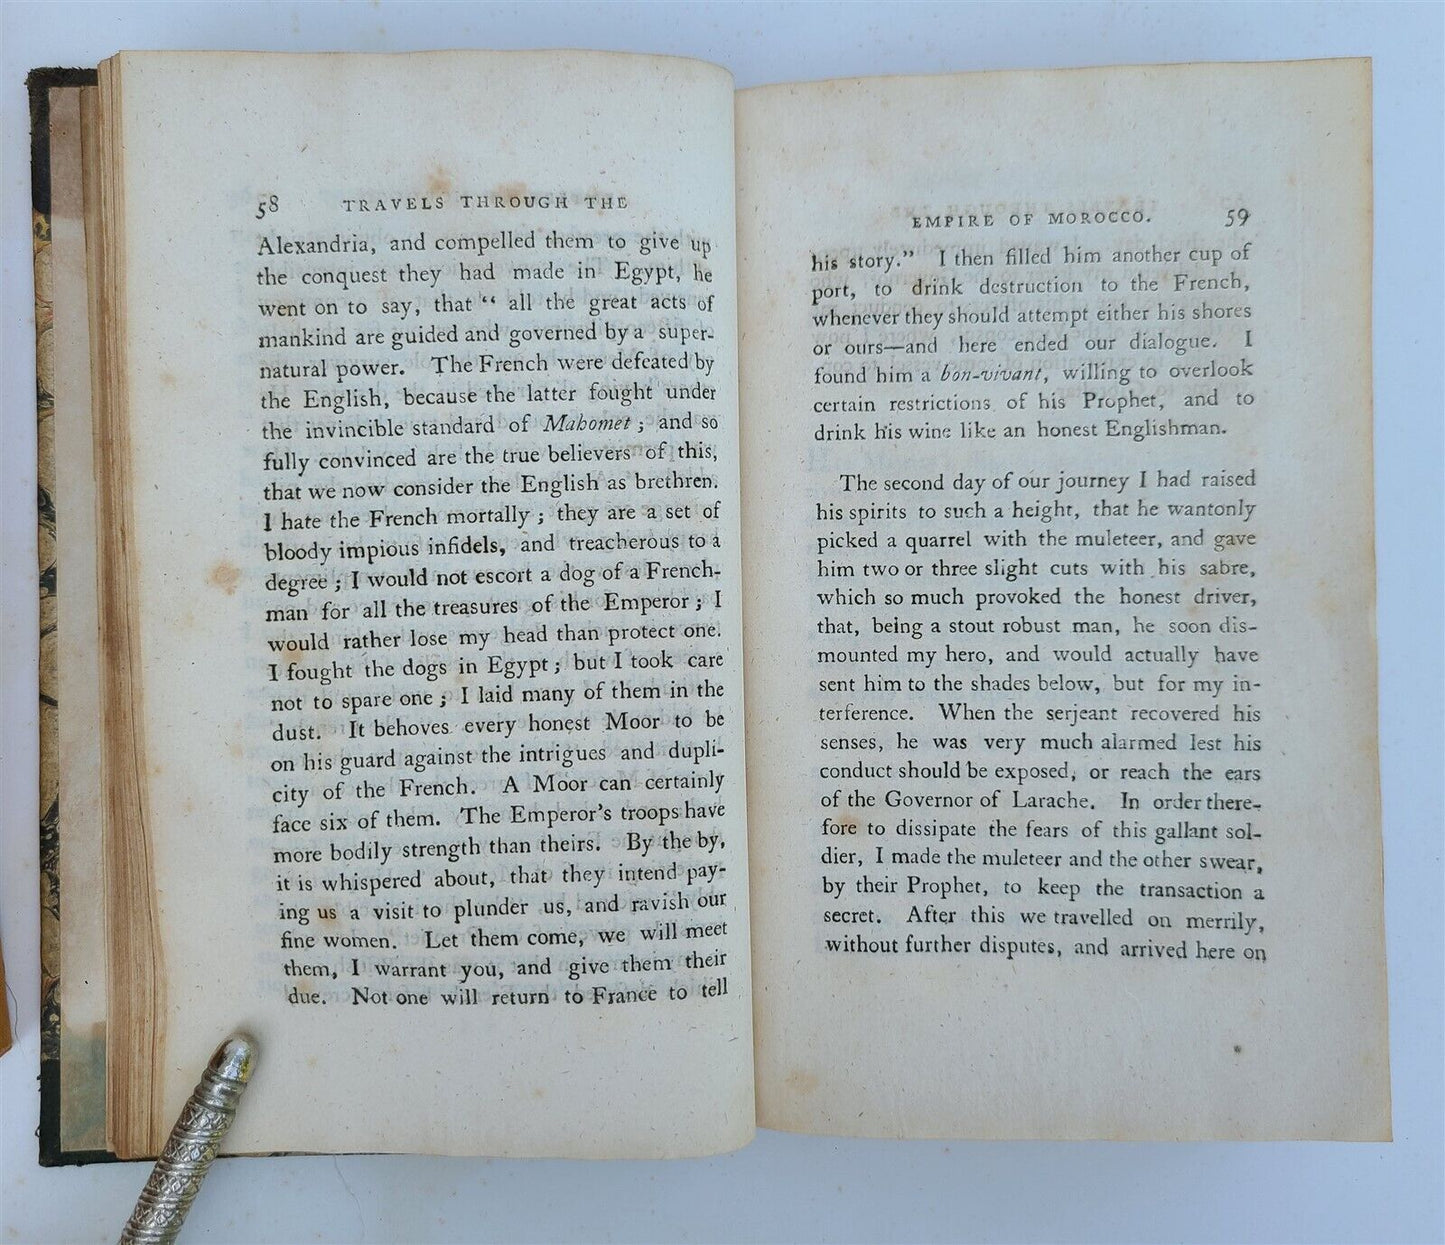 58 TRAVELS THROUGH THE
Alexandria, and compelled them to give up
the conquest they had made in Egypt, he
went on to say, that “ all the great acts of
mankind are guided and governed by a super-
natural power. The French were defeated by
the English, because the latter fought under
the invincible standard of Mahomet ; and so
fully convinced are the true believers of this,
that we now consider the English as brethren.
I hate the French mortally ; they are a set of
bloody impious infidels, and treacherous to a
degree ; I would not escort a dog of a French-
man for all the treasures of the Emperor ; I
would rather lose my head than protect one.
I fought the dogs in Egypt ; but I took care
not to spare one ; I laid many of them in the
dust. It behoves every honest Moor to be
on his guard against the intrigues and dupli-
city of the French. A Moor can certainly
face six of them. The Emperor’s troops have
more bodily strength than theirs. By the by,
it is whispered about, that they intend pay-
ing us a visit to plunder us, and ravish our
fine women. Let them come, we will meet
them, I warrant you, and give them their
due. Not one will return to France to tell
EMPIRE OF MOROCCO. 59
his story.” I then filled him another cup of
port, to drink destruction to the French,
whenever they should attempt either his shores
or ours—and here ended our dialogue. I
found him a bon-vivant, willing to overlook
certain restrictions of his Prophet, and to
drink his wine like an honest Englishman.
The second day of our journey I had raised
his spirits to such a height, that he wantonly
picked a quarrel with the muleteer, and gave
him two or three slight cuts with his sabre,
which so much provoked the honest driver,
that, being a stout robust man, he soon dis-
mounted my hero, and would actually have
sent him to the shades below, but for my in-
terference. When the serjeant recovered his
senses, he was very much alarmed lest his
conduct should be exposed, or reach the ears
of the Governor of Larache. In order there-
fore to dissipate the fears of this gallant sol-
dier, I made the muleteer and the other swear,
by their Prophet, to keep the transaction a
secret. After this we travelled on merrily,
without further disputes, and arrived here on